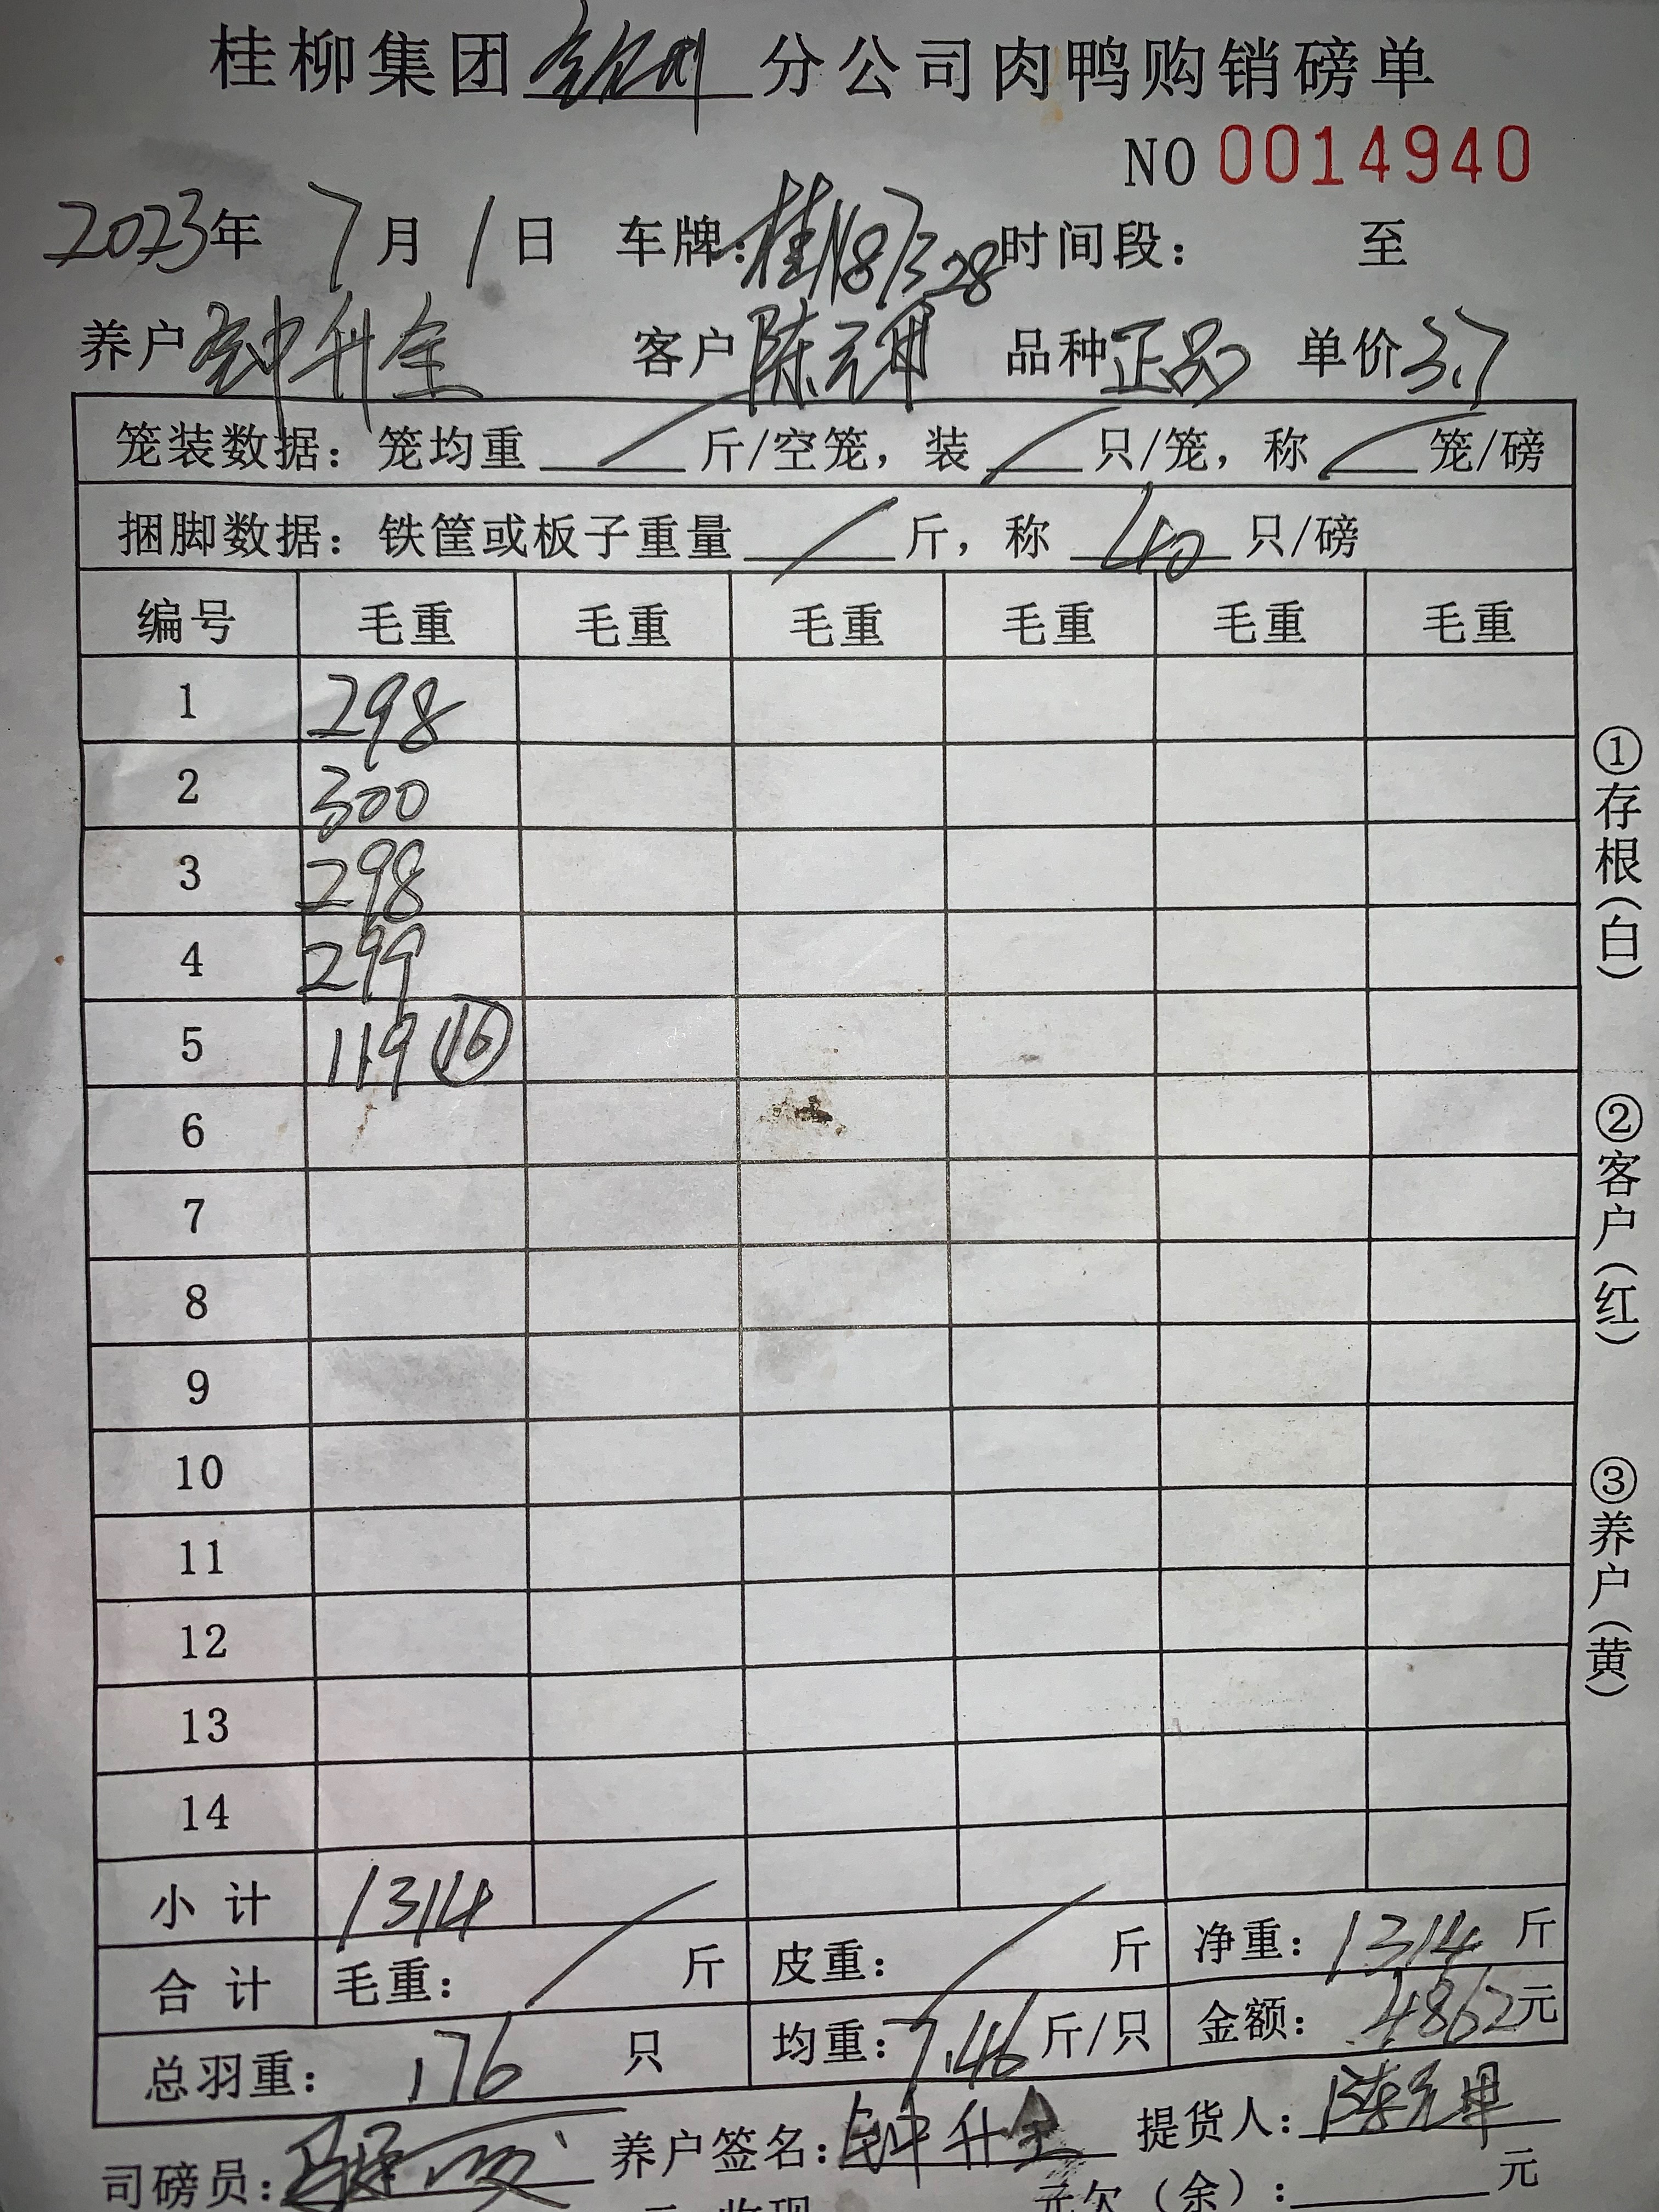 桂柳集团钦州分公司肉鸭购销磅单
NO 0014940
2023年 7月 1日 车牌:桂N87328 时间段: 至
养户 钟升全 客户 陈元 品种 正品 单价 3.7
笼装数据: 笼均重 / 斤/空笼, 装 / 只/笼, 称 / 笼/磅
捆脚数据: 铁筐或板子重量 / 斤, 称 40 只/磅
编号 毛重 毛重 毛重 毛重 毛重 毛重
1 298
2 300
3 298
4 299
5 119 ⑯
6
7
8
9
10
11
12
13
14
小计 1314
合计 毛重: / 斤 皮重: / 斤 净重: 1314 斤
总羽重: 176 只 均重: 7.46 斤/只 金额: 4862元
司磅员: 养户签名: 钟升全 提货人: 陈元
元欠(余): 元
①存根(白)
②客户(红)
③养户(黄)